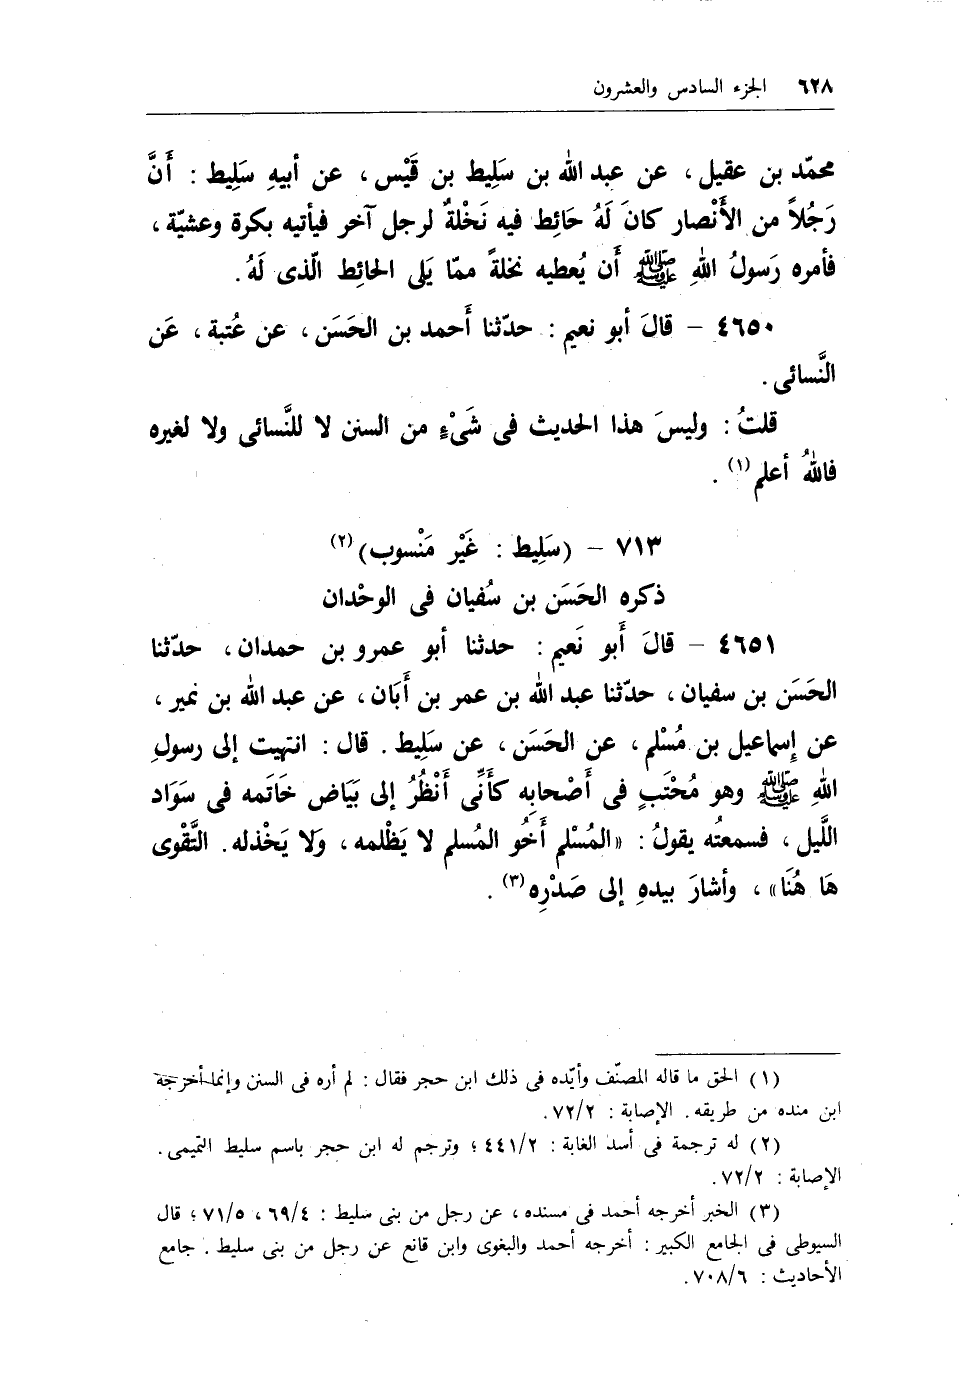 ٦٢٨ الجزء السادس والعشرون
محمّد بن عقيل ، عن عبد الله بن سَلِيط بن قَيْس ، عن أبيهِ سَلِيط : أَنَّ
رَجُلاً من الأَنْصار كانَ لَهُ حَائِط فيه نَخْلةٌ لرجل آخر فيأتيه بكرة وعشيّة ،
فأمره رَسولُ اللهِ ﷺ أَن يُعطيه نخلةً ممّا يَلى الحائِط الّذى لَهُ .
٤٦٥٠ – قالَ أبو نعيم : حدّثنا أَحمد بن الحَسَن ، عن عُتبة ، عَن
النَّسائى .
قلتُ : وليسَ هذا الحديث فى شَىْءٍ من السنن لا للنَّسائى ولا لغيره
فاللهُ أعلم (١) .
٧١٣ – (سَلِيط : غَيْر مَنْسوب) (٢)
ذكره الحَسَن بن سُفيان فى الوحْدان
٤٦٥١ – قالَ أَبو نَعيم : حدثنا أبو عمرو بن حمدان ، حدّثنا
الحَسَن بن سفيان ، حدّثنا عبد الله بن عمر بن أَبَان ، عن عبد الله بن نمير ،
عن إِسماعيل بن مُسْلم ، عن الحَسَن ، عن سَلِيط . قال : انتهيت إلى رسولِ
اللهِ ﷺ وهو مُحْتَبٍ فى أَصْحابِه كأَنِّى أَنْظُرُ إلى بَيَاض خَاتَمه فى سَوَاد
اللَّيل ، فسمعتُه يقولُ : «المُسْلم أَخُو المُسلم لا يَظْلمه ، وَلا يَخْذله . التَّقْوى
هَا هُنَا» ، وأشارَ بيدهِ إلى صَدْرِه (٣) .
(١) الحق ما قاله المصنّف وأيّده فى ذلك ابن حجر فقال : لم أره فى السنن وإنما أخرجه
ابن منده من طريقه . الإصابة : ٧٢/٢ .
(٢) له ترجمة فى أسد الغابة : ٤٤١/٢ ؛ وترجم له ابن حجر باسم سليط التميمى .
الإصابة : ٧٢/٢ .
(٣) الخبر أخرجه أحمد فى مسنده ، عن رجل من بنى سليط : ٦٩/٤ ، ٧١/٥ ؛ قال
السيوطى فى الجامع الكبير : أخرجه أحمد والبغوى وابن قانع عن رجل من بنى سليط . جامع
الأحاديث : ٧٠٨/٦ .